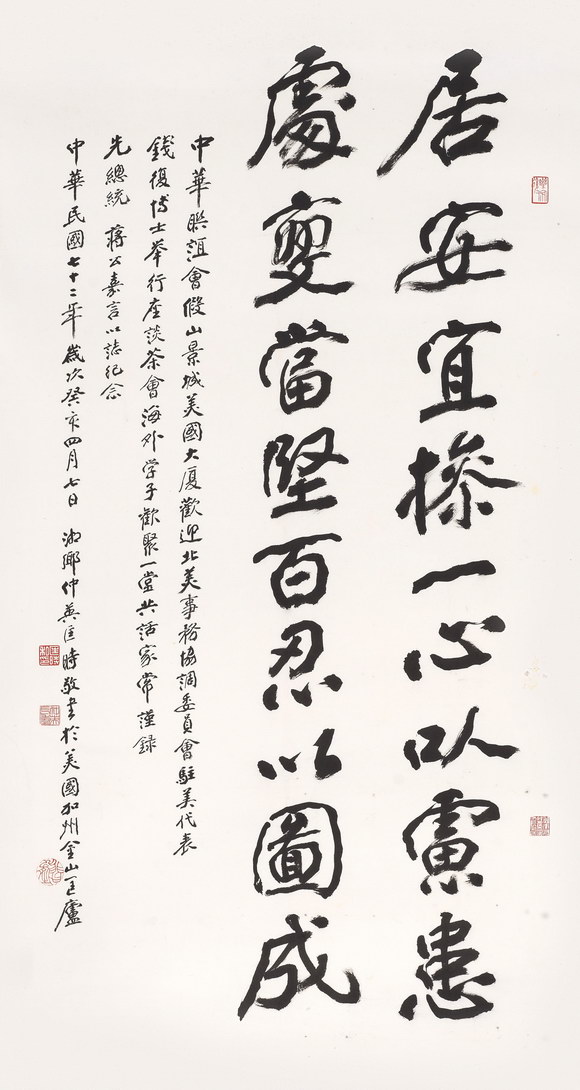 居安宜操一心以慮患
處變當堅百忍以圖成
中華聯誼會假山景城美國大廈歡迎北美事務協調委員會駐美代表
錢復博士舉行座談茶會海外学子歡聚一堂共話家常謹錄
先總統 蔣公嘉言以誌紀念
中華民國七十二年歲次癸亥四月七日 湘鄉仲英匡時敬書於美國加州金山匡廬